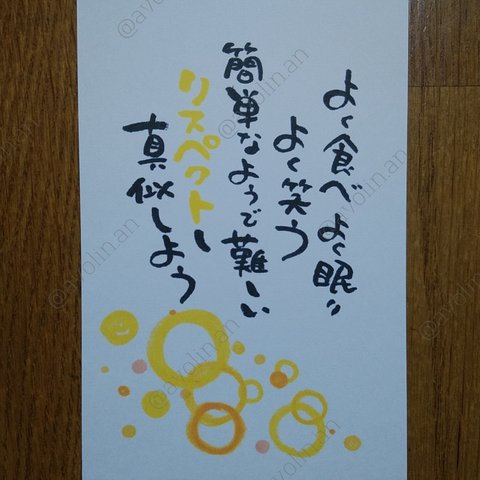 よく食べ よく眠り
よく笑う
簡単なようで難しい
リスペクトし
真似しよう
@avolin.an
@avolin.an
@avolin.an
@avolin.an
@avolin.an
@avolin.an
@avolin.an